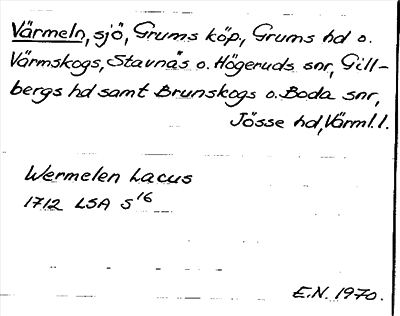 Värmeln, sjö, Grums köp., Grums hd o.
Värmskogs, Stavnäs o. Högeruds snr, Gill-
bergs hd samt Brunskogs o. Boda snr,
Jösse hd, Värml.l.
Wermelen Lacus
1712 LSA S 16
E.N. 1970.